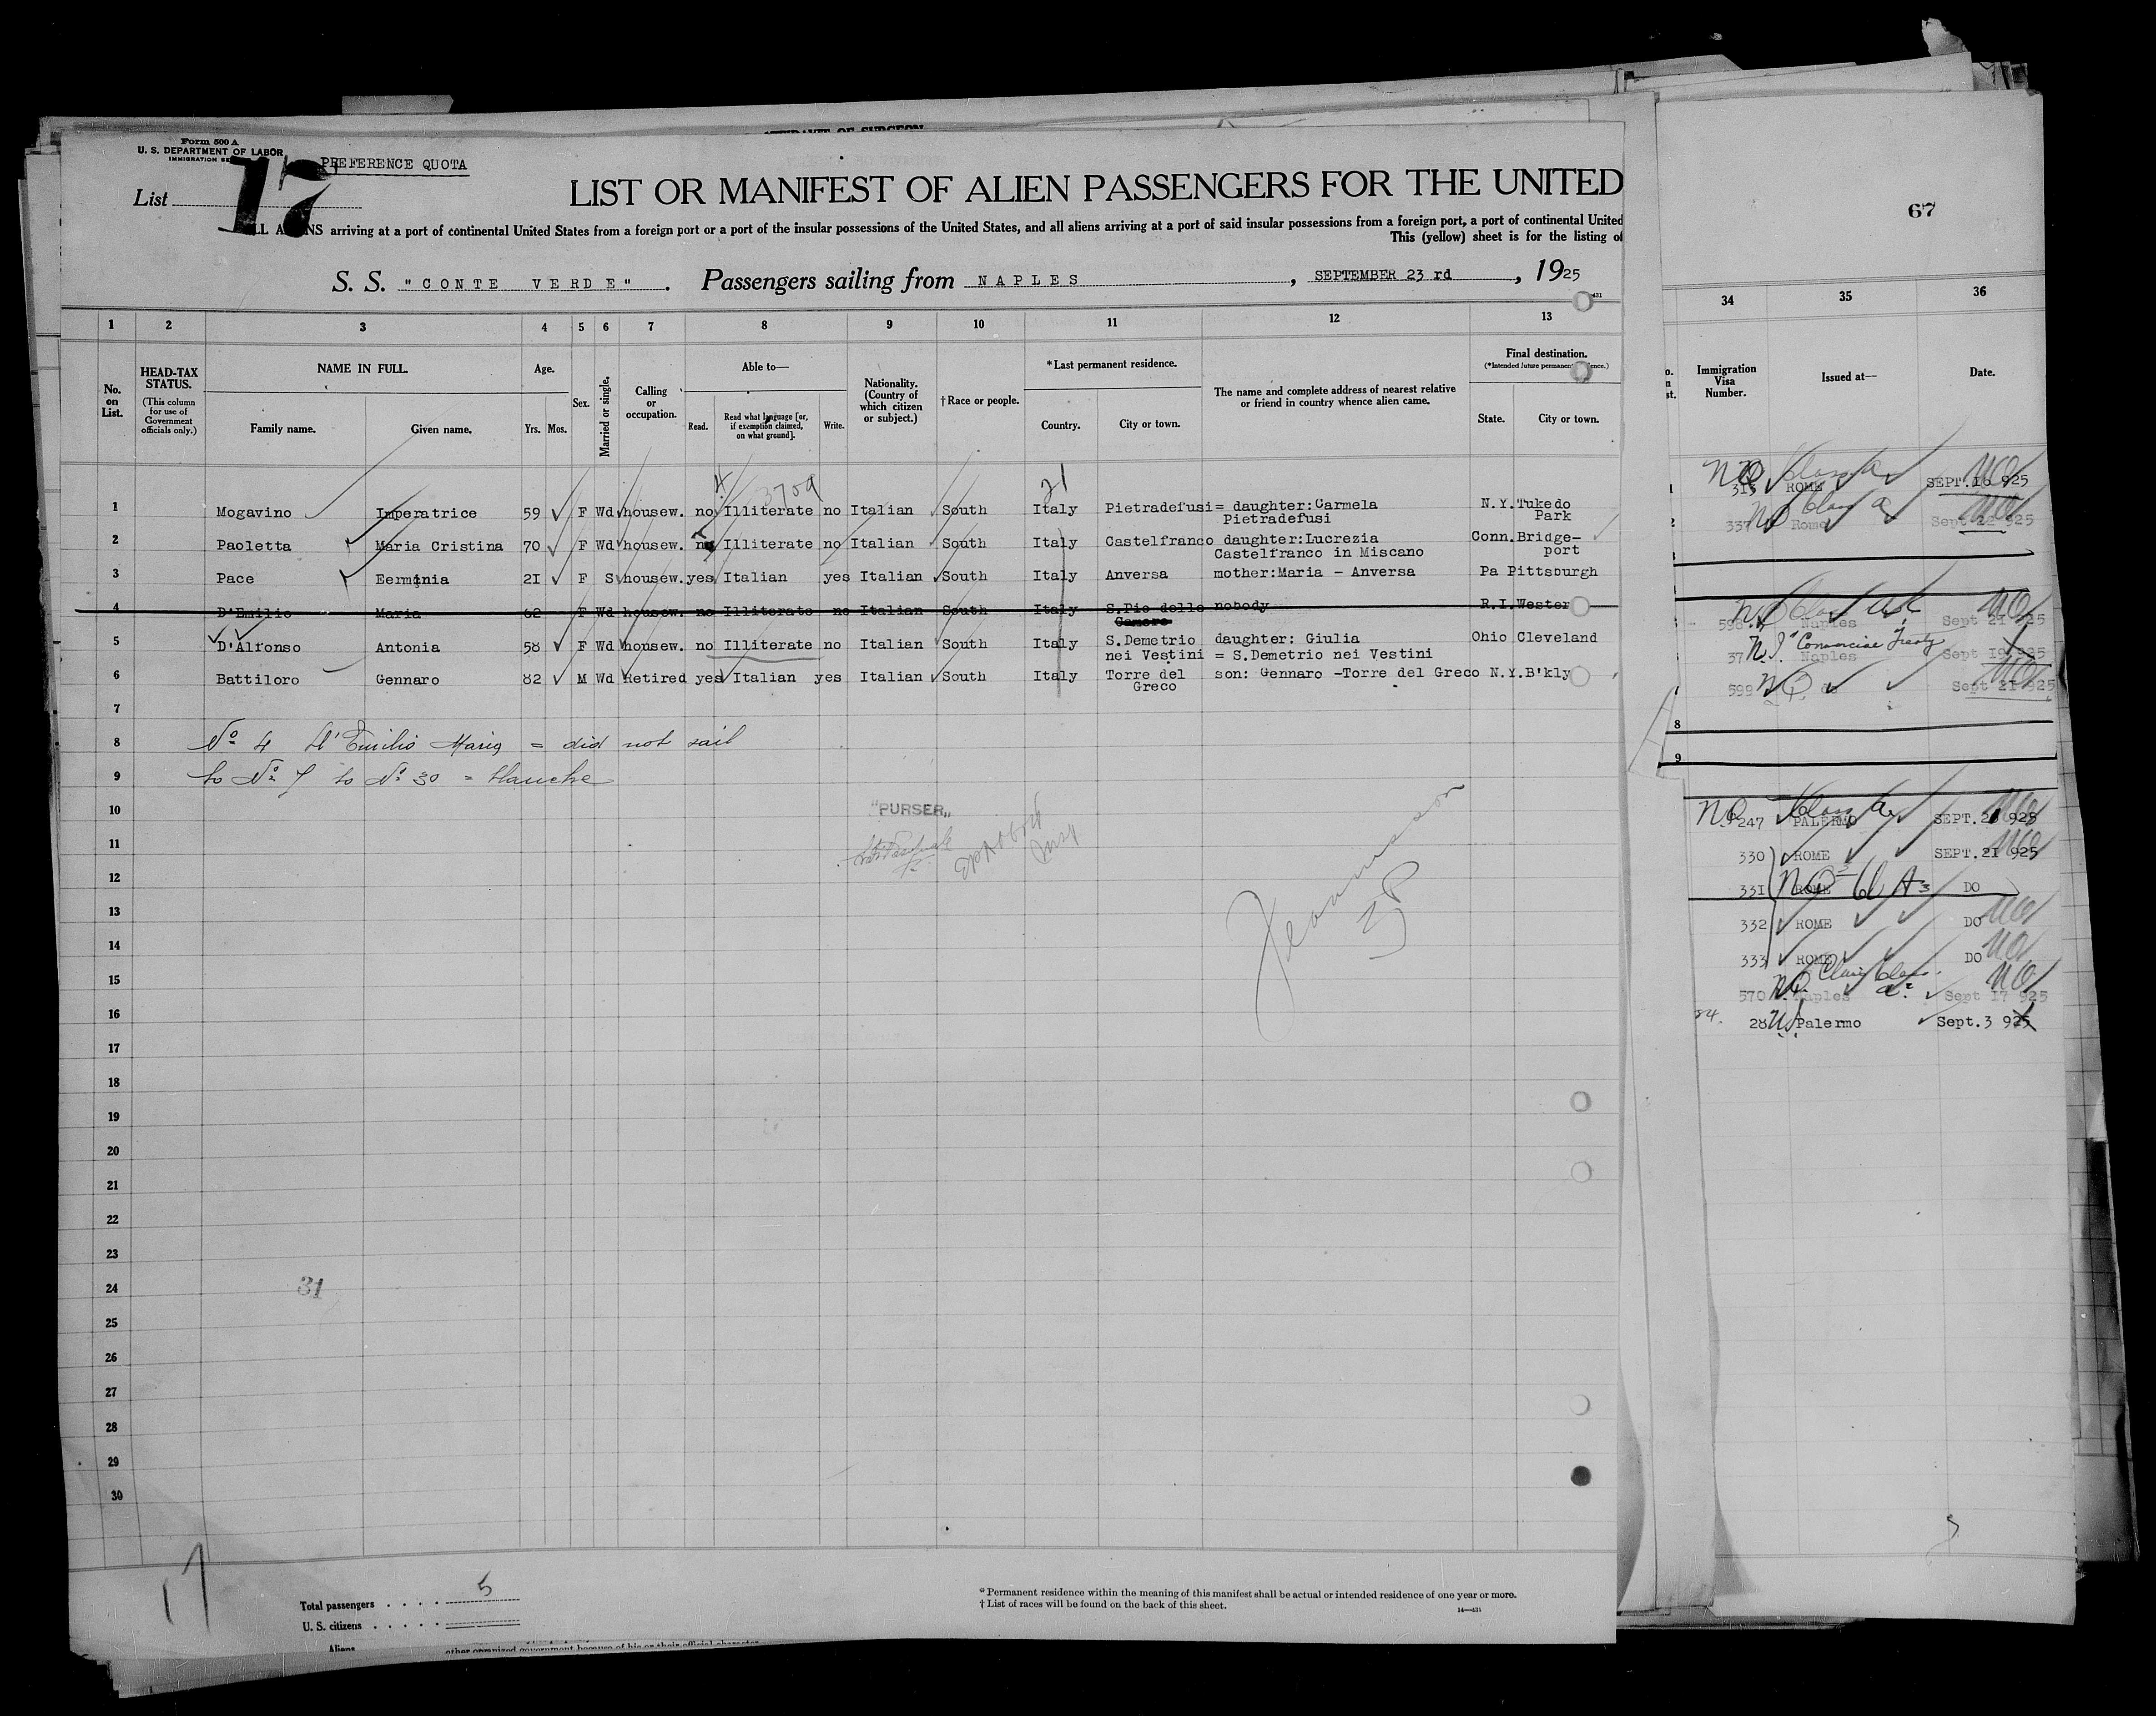 AFFIDAVIT OF SURGEON
Form 500 A
U. S. DEPARTMENT OF LABOR
IMMIGRATION
PREFERENCE QUOTA
List 17
LIST OR MANIFEST OF ALIEN PASSENGERS FOR THE UNITED
arriving at a port of continental United States from a foreign port or a port of the insular possessions of the United States, and all aliens arriving at a port of said insular possessions from a foreign port, a port of continental United
This (yellow) sheet is for the listing of
S. S. "CONTE VERDE". Passengers sailing from NAPLES, SEPTEMBER 23 rd, 1925
67
1 2 3 4 5 6 7 8 9 10 11 12 13
No. on List.
HEAD-TAX STATUS.
(This column for use of Government officials only.)
NAME IN FULL.
Family name. Given name.
Age.
Yrs. Mos.
Sex.
Married or single.
Calling or occupation.
Able to—
Read. Read what language [or, if exemption claimed, on what ground]. Write.
Nationality. (Country of which citizen or subject.)
†Race or people.
*Last permanent residence.
Country. City or town.
The name and complete address of nearest relative or friend in country whence alien came.
Final destination.
(*Intended future permanent
State. City or town.
3709
21
1 Mogavino Imperatrice 59 F Wd housew. no Illiterate no Italian South Italy Pietradefusi = daughter:Carmela N.Y. Tukedo
Pietradefusi Park
2 Paoletta Maria Cristina 70 F Wd housew. no Illiterate no Italian South Italy Castelfranco daughter:Lucrezia Conn. Bridge-
Castelfranco in Miscano port
3 Pace Eerminia 21 F S housew. yes Italian yes Italian South Italy Anversa mother:Maria - Anversa Pa Pittsburgh
4 D'Emilio Maria 62 F Wd housew. no Illiterate no Italian South Italy S.Pio delle nobody R.I. Wester
Camere
5 D'Alfonso Antonia 58 F Wd housew. no Illiterate no Italian South Italy S.Demetrio daughter: Giulia Ohio Cleveland
nei Vestini = S.Demetrio nei Vestini
6 Battiloro Gennaro 82 M Wd Retired yes Italian yes Italian South Italy Torre del son: Gennaro -Torre del Greco N.Y. B'kly
Greco
7
8 No 4 D'Emilio Maria = did not sail
9 to No 7 to No 30 = blanche
10
"PURSER"
11
12
13
14
15
16
17
18
19
20
21
22
23
24
31
25
26
27
28
29
30
17
Total passengers . . . . 5
U. S. citizens . . . . .
Aliens
* Permanent residence within the meaning of this manifest shall be actual or intended residence of one year or more.
† List of races will be found on the back of this sheet.
14—431
34 35 36
Immigration Visa Number. Issued at— Date.
NQ Class a
313 ROME SEPT. 16 925
NQ Class a
337 Rome Sept 22 925
NQ
598 Naples Sept 21 925
N.I. "Commercial Treaty
37 Naples Sept 19 925
NQ
599 do Sept 21 925
8
9
NQ Class a
247 PALERMO SEPT. 20 925
330 ROME SEPT. 21 925
331 ROME DO
332 ROME DO
333 ROME DO
570 Naples Sept 17 925
28 Palermo Sept. 3 925